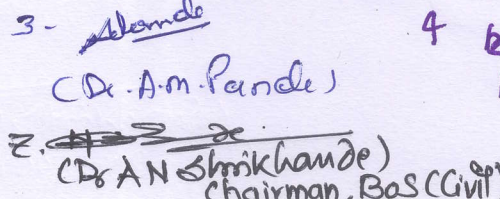 3-
4
(Dr. A.M. Pande)
2.
(Dr AN Shrikhande)
Chairman, BOS (Civil